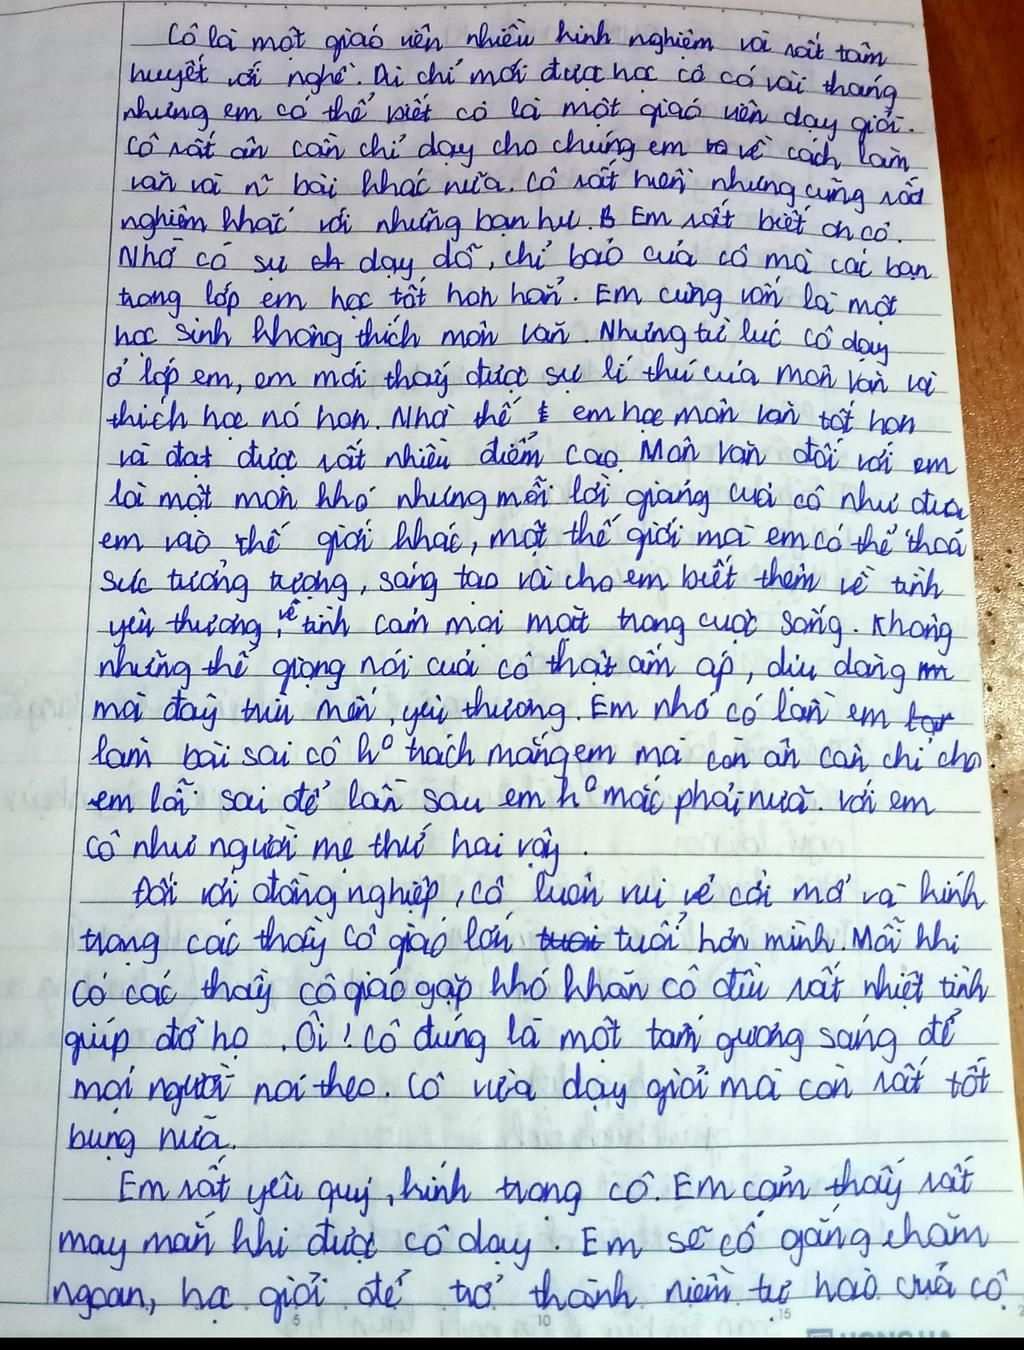 Cô là một giáo viên nhiều kinh nghiệm và rất tâm
huyết với nghề. Dù chỉ mới được học cô có vài tháng
nhưng em có thể biết cô là một giáo viên dạy giỏi.
Cô rất ân cần chỉ dạy cho chúng em về cách làm
văn và n~ bài khác nữa. Cô rất hiền nhưng cũng rất
nghiêm khắc với những bạn hư. Em rất biết ơn cô.
Nhờ có sự dạy dỗ, chỉ bảo của cô mà các bạn
trong lớp em học tốt hơn hẳn. Em cũng vốn là một
học sinh không thích môn văn. Nhưng từ lúc cô dạy
ở lớp em, em mới thấy được sự lí thú của môn văn và
thích học nó hơn. Nhờ thế em học môn văn tốt hơn
và đạt được rất nhiều điểm cao. Môn văn đối với em
là một môn khó nhưng mỗi lời giảng của cô như đưa
em vào thế giới khác, một thế giới mà em có thể thoả
sức tưởng tượng, sáng tạo và cho em biết thêm về tình
yêu thương, về tình cảm mọi mặt trong cuộc sống. Không
những thế giọng nói của cô thật ấm áp, dịu dàng
mà đầy trìu mến, yêu thương. Em nhớ có lần em
làm bài sai cô k⁰ trách mắng em mà còn ân cần chỉ cho
em lỗi sai để lần sau em k⁰ mắc phải nữa với em
cô như người mẹ thứ hai vậy.
Đối với đồng nghiệp, cô luôn vui vẻ cởi mở và kính
trọng các thầy cô giáo lớn tuổi hơn mình. Mỗi khi
có các thầy cô giáo gặp khó khăn cô đều rất nhiệt tình
giúp đỡ họ. Ôi! Cô đúng là một tấm gương sáng để
mọi người noi theo. Cô vừa dạy giỏi mà còn rất tốt
bụng nữa.
Em rất yêu quý, kính trọng cô. Em cảm thấy rất
may mắn khi được cô dạy. Em sẽ cố gắng chăm
ngoan, học giỏi để trở thành niềm tự hào của cô
5 10 15
HONG HA